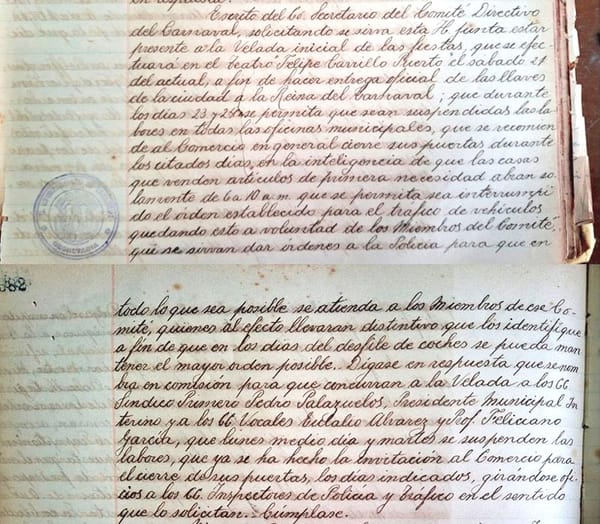 Escrito del Co. Secretario del Comité Directivo
del Carnaval, solicitando se sirva esta H. Junta estar
presente a la Velada inicial de las fiestas, que se efec-
tuará en el Teatro Felipe Carrillo Puerto el sabado 21
del actual, a fin de hacer entrega oficial de las llaves
de la ciudad a la Reina del Carnaval; que durante
los dias 23 y 24 se permita que sean suspendidas las la-
bores en todas las oficinas municipales, que se recomien-
de al Comercio en general cierre sus puertas durante
los citados dias, en la inteligencia de que las casas
que venden articulos de primera necesidad abran so-
lamente de 6 a 10 a.m. que se permita sea interrumpi-
do el orden establecido para el trafico de vehículos
quedando esto a voluntad de los Miembros del Comité,
que se sirvan dar órdenes a la Policia para que en
982
todo lo que sea posible se atienda a los Miembros de ese Co-
mité, quienes al efecto llevaran distintivo que los identifique
a fin de que en los dias del desfile de coches se pueda man
tener el mayor orden posible. Digase en respuesta que se nom
bra en comisión para que concurran a la Velada a los CC.
Sindico Primero Pedro Palazuelos, Presidente Municipal In
terino y a los CC. Vocales Eutalio Alvarez y Prof. Feliciano
Garcia, que lunes medio dia y martes se suspenden las
labores, que ya se ha hecho la invitación al Comercio para
el cierre de sus puertas, los dias indicados, girándose ofi-
cios a los CC. Inspectores de Policia y Trafico en el sentido
que lo solicitan. Cúmplase.